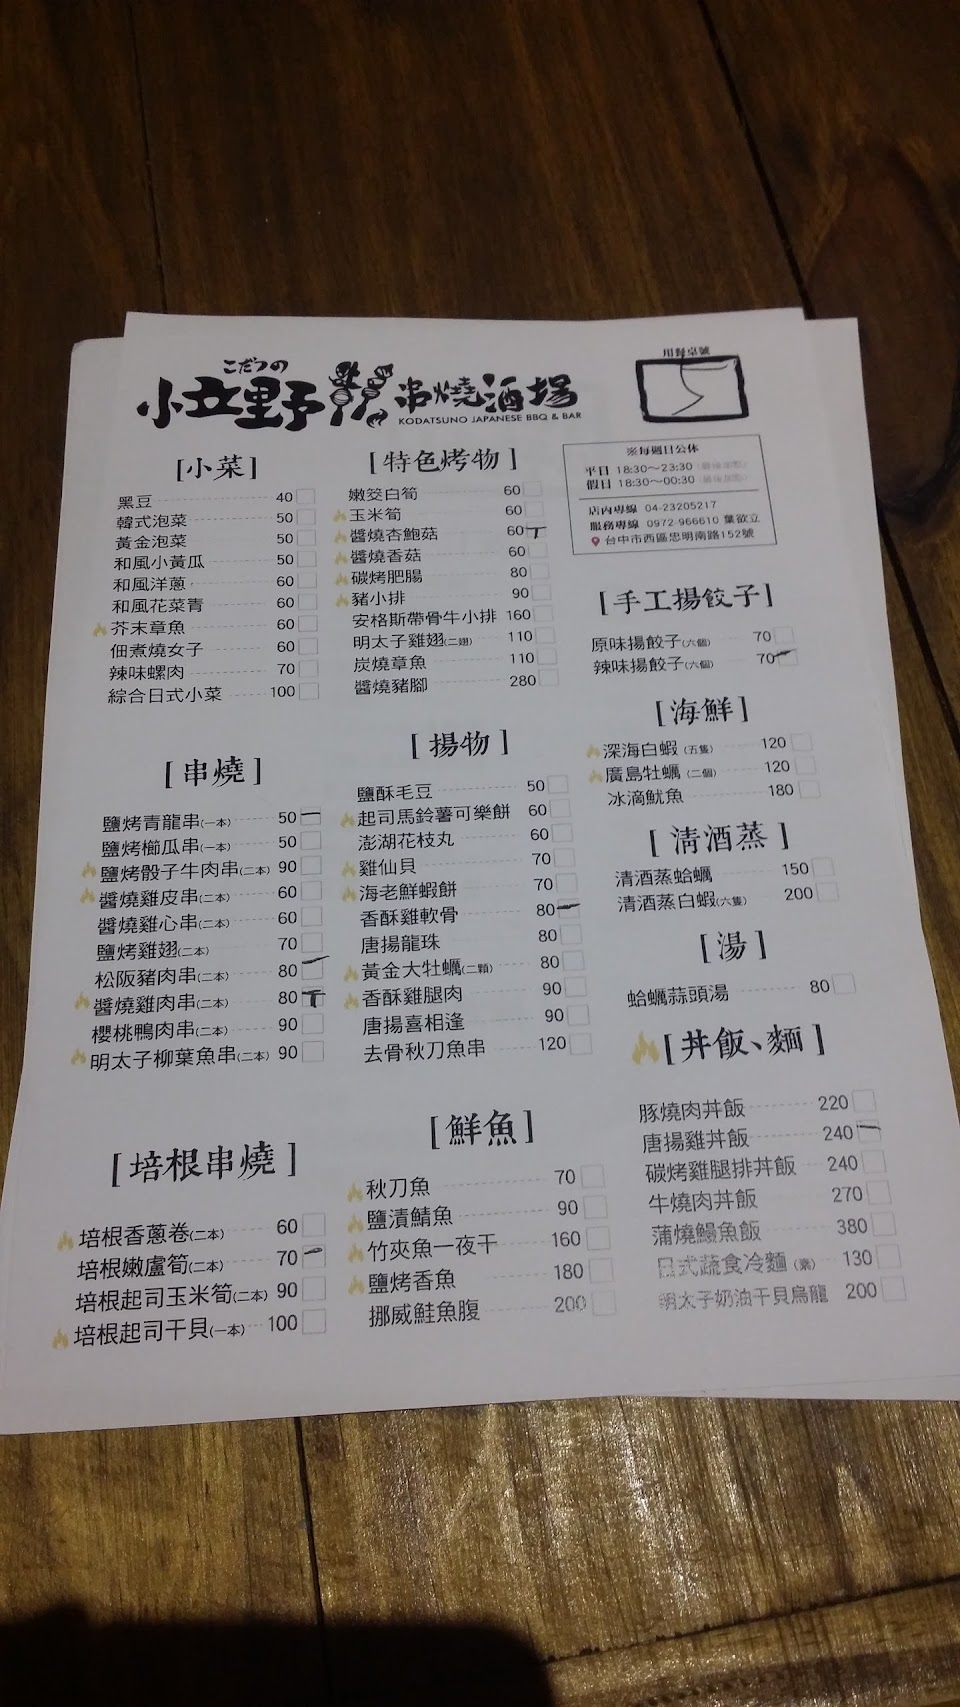 こだつの
小立野 串燒酒場
KODATSUNO JAPANESE BBQ & BAR
用餐桌號
※每週日公休
平日 18:30～23:30
假日 18:30～00:30
店內專線 04-23205217
服務專線 0972-966610 葉欲立
台中市西區忠明南路152號
[小菜]
黑豆 40
韓式泡菜 50
黃金泡菜 50
和風小黃瓜 50
和風洋蔥 60
和風花菜青 60
芥末章魚 60
佃煮燒女子 60
辣味螺肉 70
綜合日式小菜 100
[串燒]
鹽烤青龍串(一本) 50
鹽烤櫛瓜串(一本) 50
鹽烤骰子牛肉串(二本) 90
醬燒雞皮串(二本) 60
醬燒雞心串(二本) 60
鹽烤雞翅(二本) 70
松阪豬肉串(二本) 80
醬燒雞肉串(二本) 80
櫻桃鴨肉串(二本) 90
明太子柳葉魚串(二本) 90
[培根串燒]
培根香蔥卷(二本) 60
培根嫩盧筍(二本) 70
培根起司玉米筍(二本) 90
培根起司干貝(一本) 100
[特色烤物]
嫩筊白筍 60
玉米筍
醬燒杏鮑菇 60
醬燒香菇 60
碳烤肥腸 80
豬小排 90
安格斯帶骨牛小排 160
明太子雞翅(二翅) 110
炭燒章魚 110
醬燒豬腳 280
[揚物]
鹽酥毛豆 50
起司馬鈴薯可樂餅 60
澎湖花枝丸 60
雞仙貝 70
海老鮮蝦餅 70
香酥雞軟骨 80
唐揚龍珠 80
黃金大牡蠣(二顆) 80
香酥雞腿肉 90
唐揚喜相逢 90
去骨秋刀魚串 120
[鮮魚]
秋刀魚 70
鹽漬鯖魚 90
竹夾魚一夜干 160
鹽烤香魚 180
挪威鮭魚腹 200
[手工揚餃子]
原味揚餃子(六個) 70
辣味揚餃子(六個) 70
[海鮮]
深海白蝦(五隻) 120
廣島牡蠣(二個) 120
冰滴魷魚 180
[清酒蒸]
清酒蒸蛤蠣 150
清酒蒸白蝦(六隻) 200
[湯]
蛤蠣蒜頭湯 80
[丼飯、麵]
豚燒肉丼飯 220
唐揚雞丼飯 240
碳烤雞腿排丼飯 240
牛燒肉丼飯 270
蒲燒鰻魚飯 380
日式蔬食冷麵(素) 130
明太子奶油干貝烏龍 200